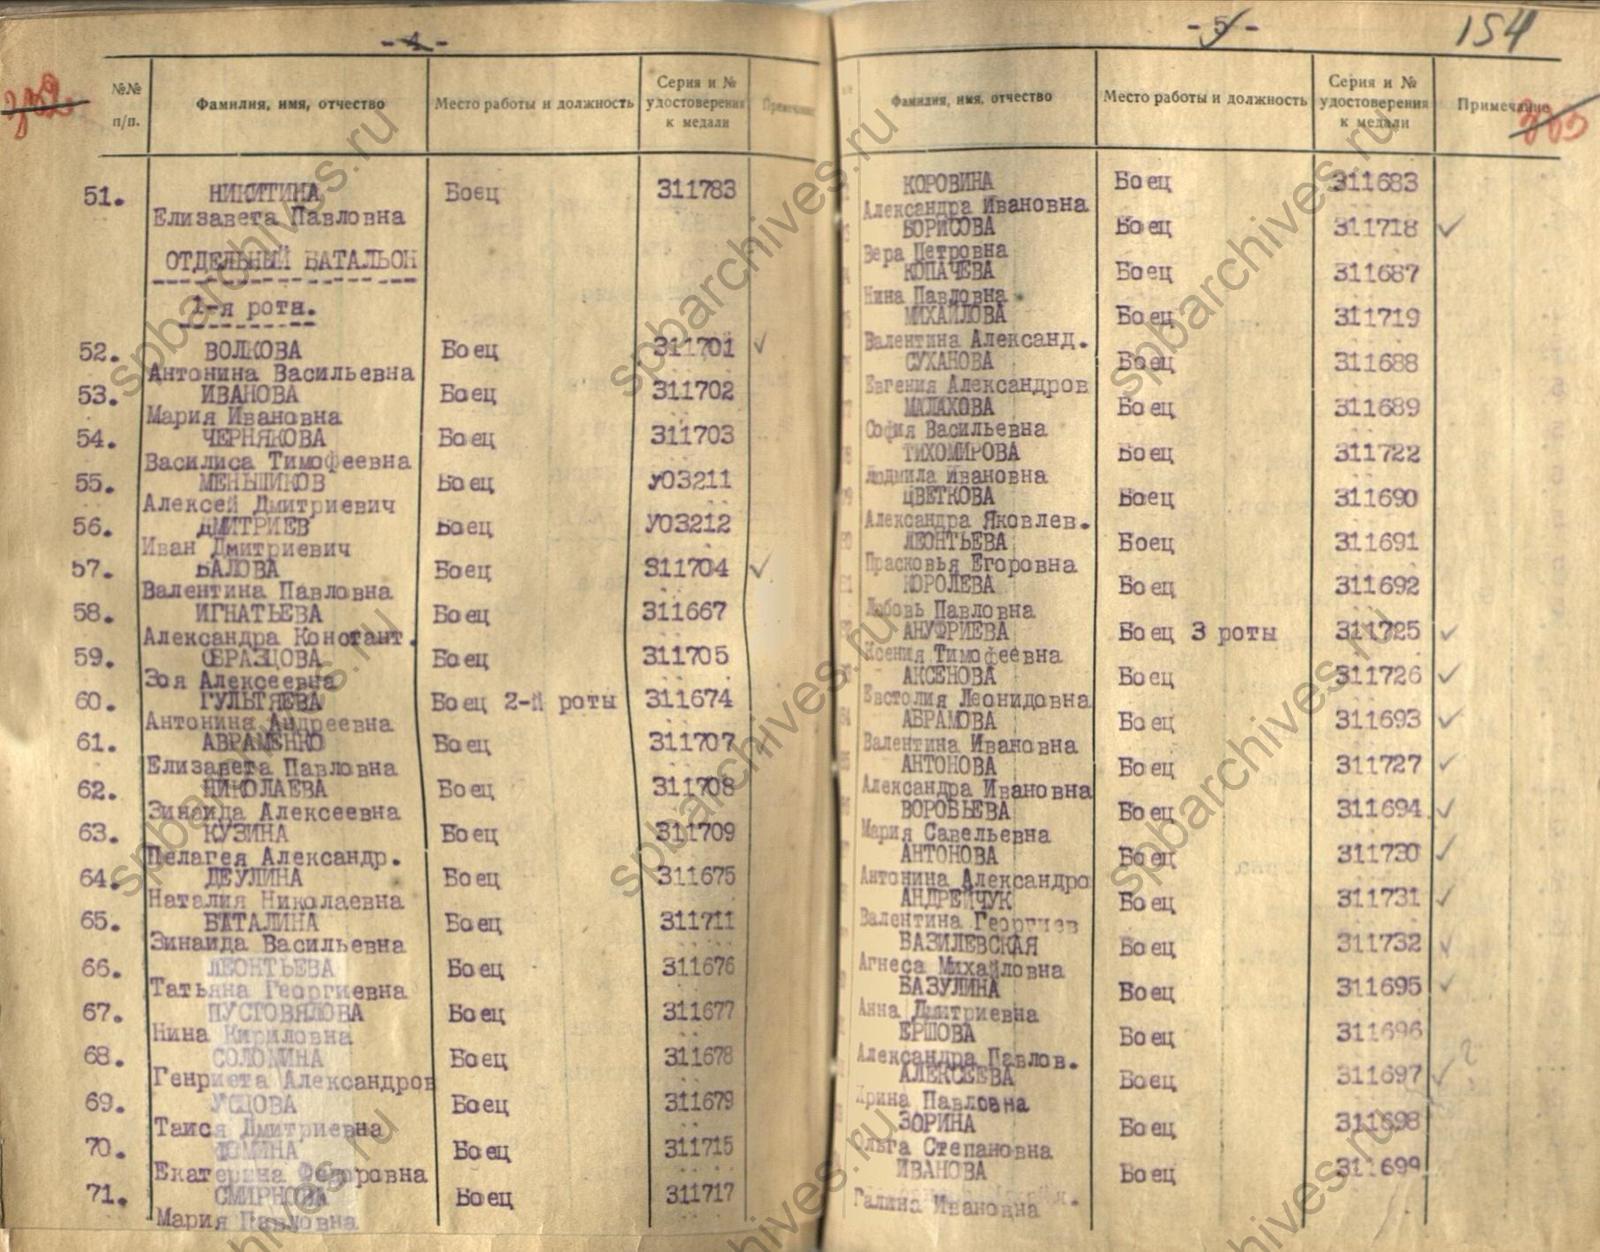 - 4 -
352
№№ п/п.
Фамилия, имя, отчество
Место работы и должность
Серия и № удостоверения к медали
51. НИКИТИНА Боец 311783
Елизавета Павловна
ОТДЕЛЬНЫЙ БАТАЛЬОН
1-я рота.
52. ВОЛКОВА Боец 311701 ✓
Антонина Васильевна
53. ИВАНОВА Боец 311702
Мария Ивановна
54. ЧЕРНЯКОВА Боец 311703
Василиса Тимофеевна
55. МЕНЬШИКОВ Боец У03211
Алексей Дмитриевич
56. ДМИТРИЕВ Боец У03212
Иван Дмитриевич
57. БАЛОВА Боец 311704 ✓
Валентина Павловна
58. ИГНАТЬЕВА Боец 311667
Александра Констант.
59. ОБРАЗЦОВА Боец 311705
Зоя Алексеевна
60. ГУЛЬТЯЕВА Боец 2-й роты 311674
Антонина Андреевна
61. АВРАМЕНКО Боец 311707 ✓
Елизавета Павловна
62. НИКОЛАЕВА Боец 311708
Зинаида Алексеевна
63. КУЗИНА Боец 311709
Пелагея Александр.
64. ДЕУЛИНА Боец 311675
Наталия Николаевна
65. БАТАЛИНА Боец 311711
Зинаида Васильевна
66. ЛЕОНТЬЕВА Боец 311676
Татьяна Георгиевна
67. ПУСТОВЯЛОВА Боец 311677
Нина Кириловна
68. СОЛОМИНА Боец 311678
Генриета Александров
69. УСЦОВА Боец 311679
Таися Дмитриевна
70. ФОМИНА Боец 311715
Екатерина Федоровна
71. СМИРНОВА Боец 311717
Мария Павловна
- 5 -
154
Фамилия, имя, отчество
Место работы и должность
Серия и № удостоверения к медали
Примечание
КОРОВИНА Боец 311683
Александра Ивановна
БОРИСОВА Боец 311718 ✓
Вера Петровна
КОПАЧЕВА Боец 311687
Нина Павловна
МИХАЙЛОВА Боец 311719
Валентина Александ.
СУХАНОВА Боец 311688
Евгения Александров
МАЛАХОВА Боец 311689
София Васильевна
ТИХОМИРОВА Боец 311722
Людмила Ивановна
ЦВЕТКОВА Боец 311690
Александра Яковлев.
ЛЕОНТЬЕВА Боец 311691
Прасковья Егоровна
КОРОЛЕВА Боец 311692
Любовь Павловна
АНУФРИЕВА Боец 3 роты 311725 ✓
Ксения Тимофеевна
АКСЕНОВА Боец 311726 ✓
Евстолия Леонидовна
АБРАМОВА Боец 311693 ✓
Валентина Ивановна
АНТОНОВА Боец 311727 ✓
Александра Ивановна
ВОРОБЬЕВА Боец 311694 ✓
Мария Савельевна
АНТОНОВА Боец 311730 ✓
Антонина Александро
АНДРЕЙЧУК Боец 311731 ✓
Валентина Георгиев
БАЗИЛЕВСКАЯ Боец 311732 ✓
Агнеса Михайловна
БАЗУЛИНА Боец 311695 ✓
Анна Дмитриевна
ЕРШОВА Боец 311696
Александра Павлов.
АЛЕКСЕЕВА Боец 311697 ✓ ?
Ирина Павловна
ЗОРИНА Боец 311698
Ольга Степановна
ИВАНОВА Боец 311699
Галина Ивановна
spbarchives.ru